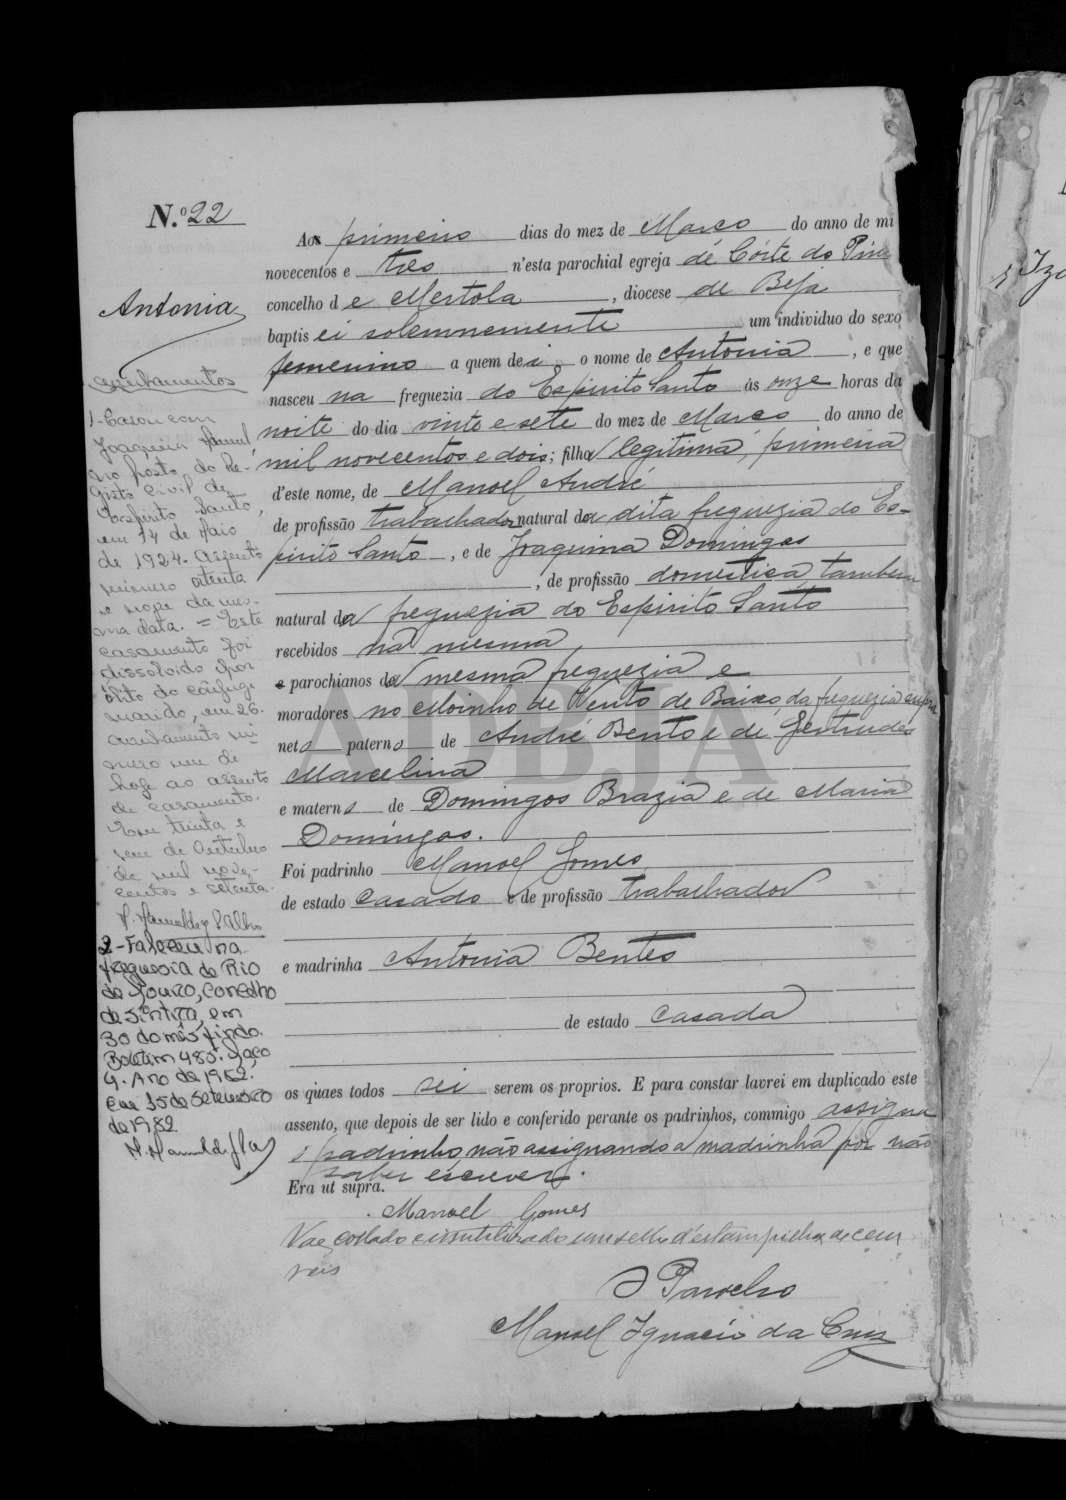 N.º 22
Antonia
Aos primeiro dias do mez de Março do anno de mi
novecentos e tres n'esta parochial egreja de Côrte do Pin
concelho de Mertola, diocese de Beja
baptisei solemnemente um individuo do sexo
femenino a quem dei o nome de Antonia, e que
nasceu na freguezia do Espirito Santo ás onze horas da
noite do dia vinte e sete do mez de Março do anno de
mil novecentos e dois; filha legitima, primeira
d'este nome, de Manoel André
de profissão trabalhador natural da dita freguezia do Es-
pirito Santo, e de Joaquina Domingas
, de profissão domestica, tambem
natural da freguezia do Espirito Santo
recebidos na mesma
e parochianos da mesma freguezia e
moradores no Moinho de Vento de Baixo da freguezia supra
neta paterna de André Bento e de Gertrudes
Marcelina
e materna de Domingos Brazia e de Maria
Domingas.
Foi padrinho Manoel Gomes
de estado casado e de profissão trabalhador
e madrinha Antonia Bentes
de estado casada
os quaes todos sei serem os proprios. E para constar lavrei em duplicado este
assento, que depois de ser lido e conferido perante os padrinhos, commigo assigna
o padrinho, não assignando a madrinha por não
saber escrever.
Era ut supra.
Manoel Gomes
Vae collado e inutilizado um sello d'estampilha de cem
reis
O Parocho
Manoel Ignacio da Cruz
Averbamentos
1-Casou com
Joaquim
no posto do Re-
gisto Civil de
Espirito Santo,
em 14 de Maio
de 1924. Assento
numero oitenta
e nove da mes-
ma data. = Este
casamento foi
dissolvido por
óbito do cônjuge
marido, em 26.
Averbamento nú-
mero um de
hoje ao assento
de casamento.
Em trinta e
um de Outubro
de mil nove-
centos e setenta.
2-Faleceu na
freguesia de Rio
de Mouro, concelho
de Sintra, em
30 do mês findo.
Boletim 485. Maço
4. Ano de 1982.
Em 15 de Setembro
de 1982
ADBJA